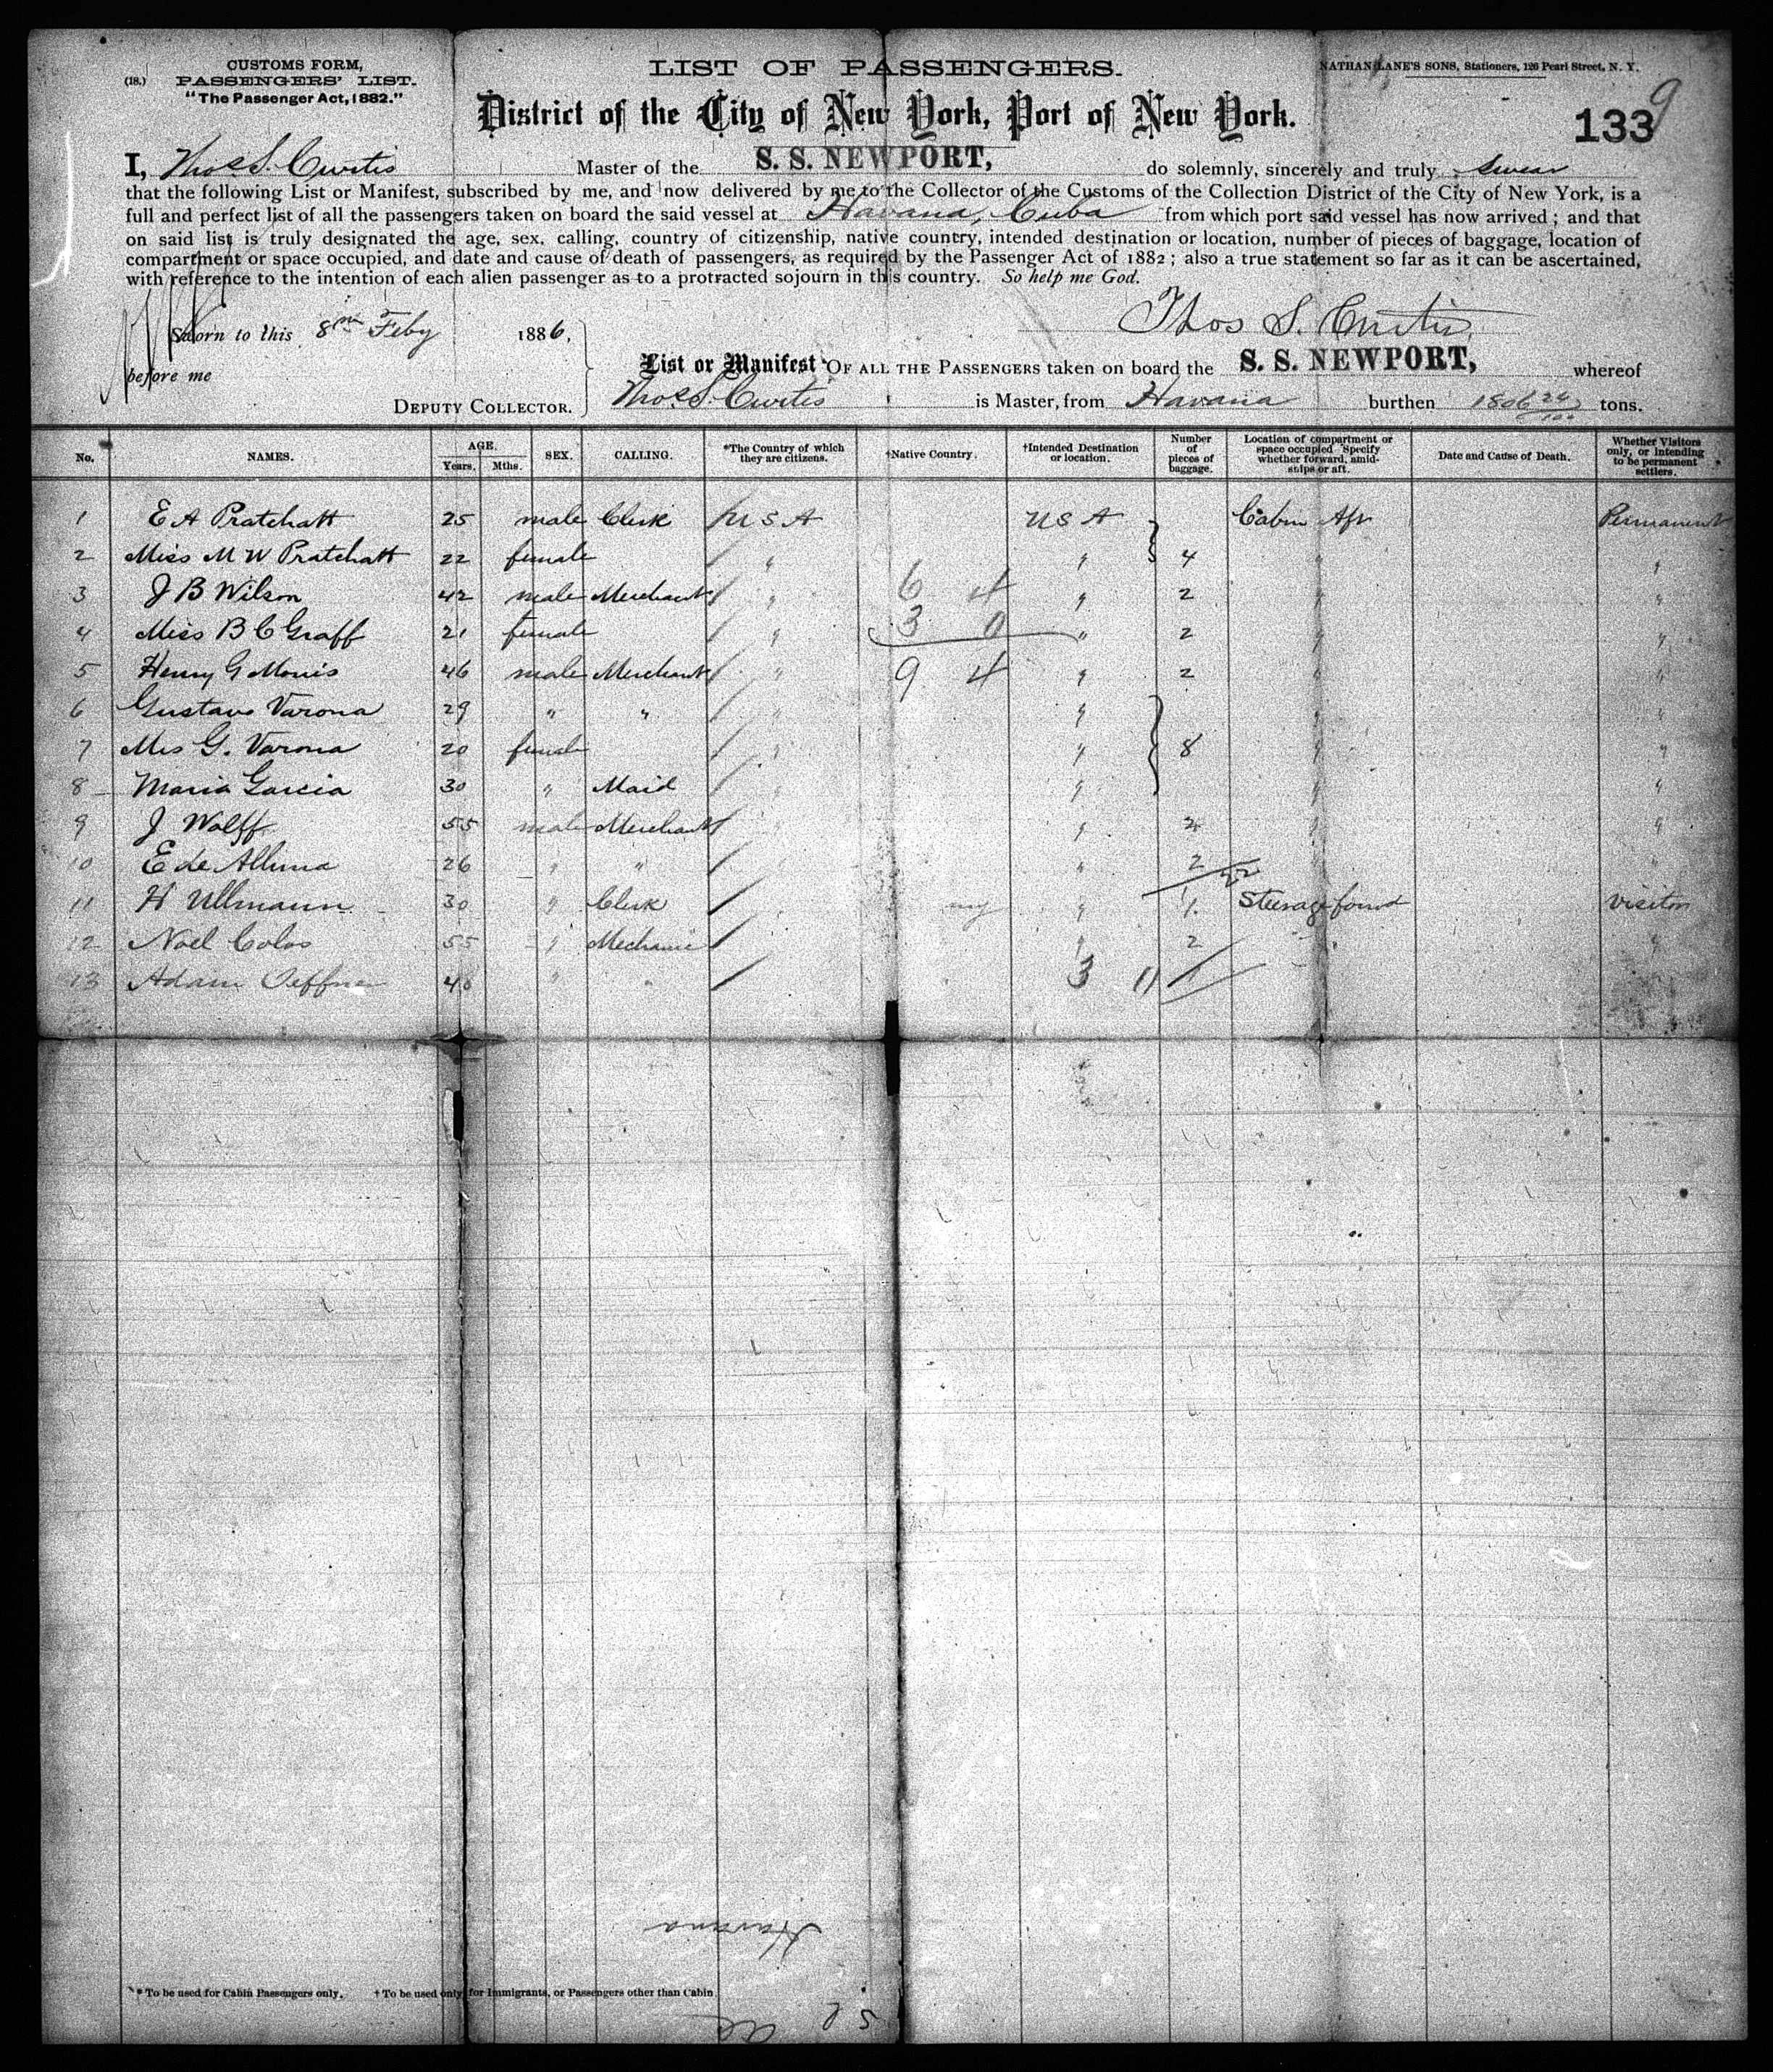 CUSTOMS FORM,
(18.) PASSENGERS' LIST.
"The Passenger Act, 1882."
LIST OF PASSENGERS.
NATHAN LANE'S SONS, Stationers, 126 Pearl Street, N. Y.
District of the City of New York, Port of New York.
133 9
I, Thos S. Curtis Master of the S. S. NEWPORT, do solemnly, sincerely and truly swear
that the following List or Manifest, subscribed by me, and now delivered by me to the Collector of the Customs of the Collection District of the City of New York, is a
full and perfect list of all the passengers taken on board the said vessel at Havana, Cuba from which port said vessel has now arrived; and that
on said list is truly designated the age, sex, calling, country of citizenship, native country, intended destination or location, number of pieces of baggage, location of
compartment or space occupied, and date and cause of death of passengers, as required by the Passenger Act of 1882; also a true statement so far as it can be ascertained,
with reference to the intention of each alien passenger as to a protracted sojourn in this country. So help me God.
Sworn to this 8th Feby 1886,
Thos S. Curtis
before me
List or Manifest OF ALL THE PASSENGERS taken on board the S. S. NEWPORT, whereof
DEPUTY COLLECTOR. Thos S. Curtis is Master, from Havana burthen 1806 24/100 tons.
No. NAMES. AGE. Years. Mths. SEX. CALLING. *The Country of which they are citizens. †Native Country. †Intended Destination or location. Number of pieces of baggage. Location of compartment or space occupied Specify whether forward, amidships or aft. Date and Cause of Death. Whether Visitors only, or intending to be permanent settlers.
1 E A Pratchatt 25 male Clerk U S A U S A Cabin Aft Permanent
2 Miss M W Pratchatt 22 female " " 4 " "
3 J B Wilson 42 male Merchant " 6 4 " 2 " "
4 Miss B C Graff 21 female " 3 0 " 2 " "
5 Henry G Morris 46 male Merchant " 9 4 " 2 " "
6 Gustavo Varona 29 " " " " " "
7 Mrs G. Varona 20 female " " 8 " "
8 Maria Garcia 30 " Maid " " " "
9 J Wolff 55 male Merchant " " 2 " "
10 E de 26 " " " 2 22 "
11 H Ullmann 30 " Clerk " " 1 Steerage forwd Visitor
12 Noel Colos 55 " Mechanic " 2 " "
13 Adam 40 " " 3 11
Havana
* To be used for Cabin Passengers only. † To be used only for Immigrants, or Passengers other than Cabin